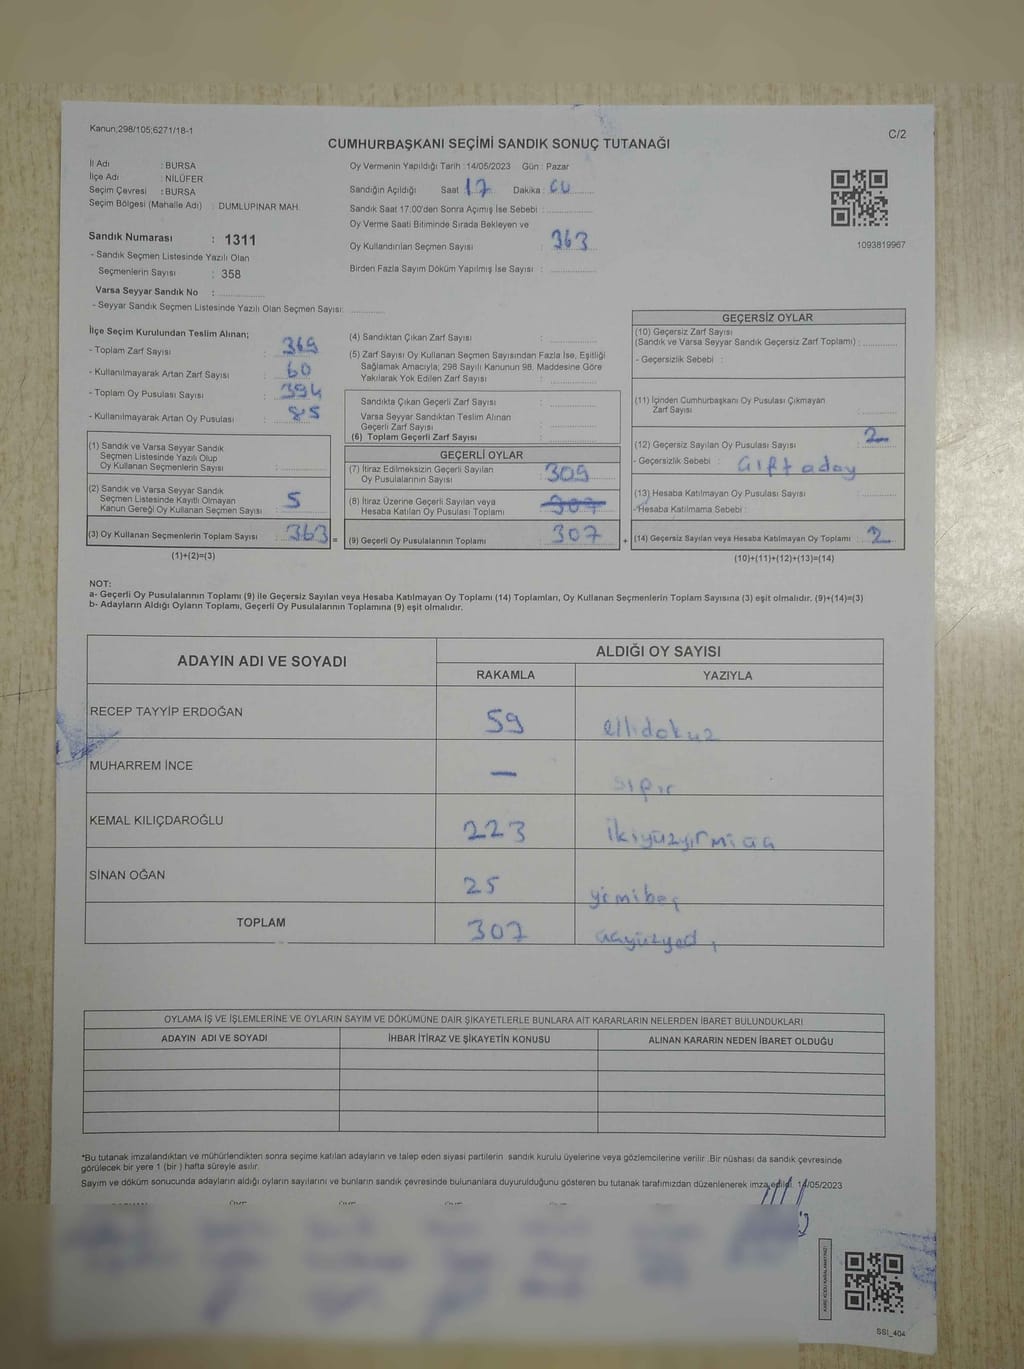 Kanun;298/105;6271/18-1
C/2
CUMHURBAŞKANI SEÇİMİ SANDIK SONUÇ TUTANAĞI
İl Adı : BURSA
İlçe Adı : NİLÜFER
Seçim Çevresi : BURSA
Seçim Bölgesi (Mahalle Adı) : DUMLUPINAR MAH.
Sandık Numarası : 1311
- Sandık Seçmen Listesinde Yazılı Olan
Seçmenlerin Sayısı : 358
Varsa Seyyar Sandık No :
- Seyyar Sandık Seçmen Listesinde Yazılı Olan Seçmen Sayısı:
Oy Vermenin Yapıldığı Tarih : 14/05/2023 Gün : Pazar
Sandığın Açıldığı Saat : 17 Dakika :
Sandık Saat 17:00'den Sonra Açımış İse Sebebi :
Oy Verme Saati Bitiminde Sırada Bekleyen ve
Oy Kullandırılan Seçmen Sayısı : 363
Birden Fazla Sayım Döküm Yapılmış İse Sayısı :
1093819967
İlçe Seçim Kurulundan Teslim Alınan;
- Toplam Zarf Sayısı : 369
- Kullanılmayarak Artan Zarf Sayısı : 60
- Toplam Oy Pusulası Sayısı : 394
- Kullanılmayarak Artan Oy Pusulası : 85
(1) Sandık ve Varsa Seyyar Sandık
Seçmen Listesinde Yazılı Olup
Oy Kullanan Seçmenlerin Sayısı :
(2) Sandık ve Varsa Seyyar Sandık
Seçmen Listesinde Kayıtlı Olmayan
Kanun Gereği Oy Kullanan Seçmen Sayısı : 5
(3) Oy Kullanan Seçmenlerin Toplam Sayısı : 363 =
(1)+(2)=(3)
(4) Sandıktan Çıkan Zarf Sayısı :
(5) Zarf Sayısı Oy Kullanan Seçmen Sayısından Fazla İse, Eşitliği
Sağlamak Amacıyla; 298 Sayılı Kanunun 98. Maddesine Göre
Yakılarak Yok Edilen Zarf Sayısı :
Sandıkta Çıkan Geçerli Zarf Sayısı :
Varsa Seyyar Sandıktan Teslim Alınan
Geçerli Zarf Sayısı :
(6) Toplam Geçerli Zarf Sayısı :
GEÇERLİ OYLAR
(7) İtiraz Edilmeksizin Geçerli Sayılan
Oy Pusulalarının Sayısı : 309
(8) İtiraz Üzerine Geçerli Sayılan veya
Hesaba Katılan Oy Pusulası Toplamı : 307
(9) Geçerli Oy Pusulalarının Toplamı : 307 +
GEÇERSİZ OYLAR
(10) Geçersiz Zarf Sayısı
(Sandık ve Varsa Seyyar Sandık Geçersiz Zarf Toplamı) :
- Geçersizlik Sebebi :
(11) İçinden Cumhurbaşkanı Oy Pusulası Çıkmayan
Zarf Sayısı :
(12) Geçersiz Sayılan Oy Pusulası Sayısı : 2
- Geçersizlik Sebebi : Çift aday
(13) Hesaba Katılmayan Oy Pusulası Sayısı :
- Hesaba Katılmama Sebebi :
(14) Geçersiz Sayılan veya Hesaba Katılmayan Oy Toplamı : 2
(10)+(11)+(12)+(13)=(14)
NOT:
a- Geçerli Oy Pusulalarının Toplamı (9) ile Geçersiz Sayılan veya Hesaba Katılmayan Oy Toplamı (14) Toplamları, Oy Kullanan Seçmenlerin Toplam Sayısına (3) eşit olmalıdır. (9)+(14)=(3)
b- Adayların Aldığı Oyların Toplamı, Geçerli Oy Pusulalarının Toplamına (9) eşit olmalıdır.
ADAYIN ADI VE SOYADI
ALDIĞI OY SAYISI
RAKAMLA YAZIYLA
RECEP TAYYİP ERDOĞAN 59 ellidokuz
MUHARREM İNCE — sıfır
KEMAL KILIÇDAROĞLU 223 ikiyüzyirmi üç
SİNAN OĞAN 25 yirmibeş
TOPLAM 307 üçyüzyedi
OYLAMA İŞ VE İŞLEMLERİNE VE OYLARIN SAYIM VE DÖKÜMÜNE DAİR ŞİKAYETLERLE BUNLARA AİT KARARLARIN NELERDEN İBARET BULUNDUKLARI
ADAYIN ADI VE SOYADI İHBAR İTİRAZ VE ŞİKAYETİN KONUSU ALINAN KARARIN NEDEN İBARET OLDUĞU
*Bu tutanak imzalandıktan ve mühürlendikten sonra seçime katılan adayların ve talep eden siyasi partilerin sandık kurulu üyelerine veya gözlemcilerine verilir .Bir nüshası da sandık çevresinde
görülecek bir yere 1 (bir ) hafta süreyle asılır.
Sayım ve döküm sonucunda adayların aldığı oyların sayılarını ve bunların sandık çevresinde bulunanlara duyurulduğunu gösteren bu tutanak tarafımızdan düzenlenerek imza edildi. 14/05/2023
SSI_404